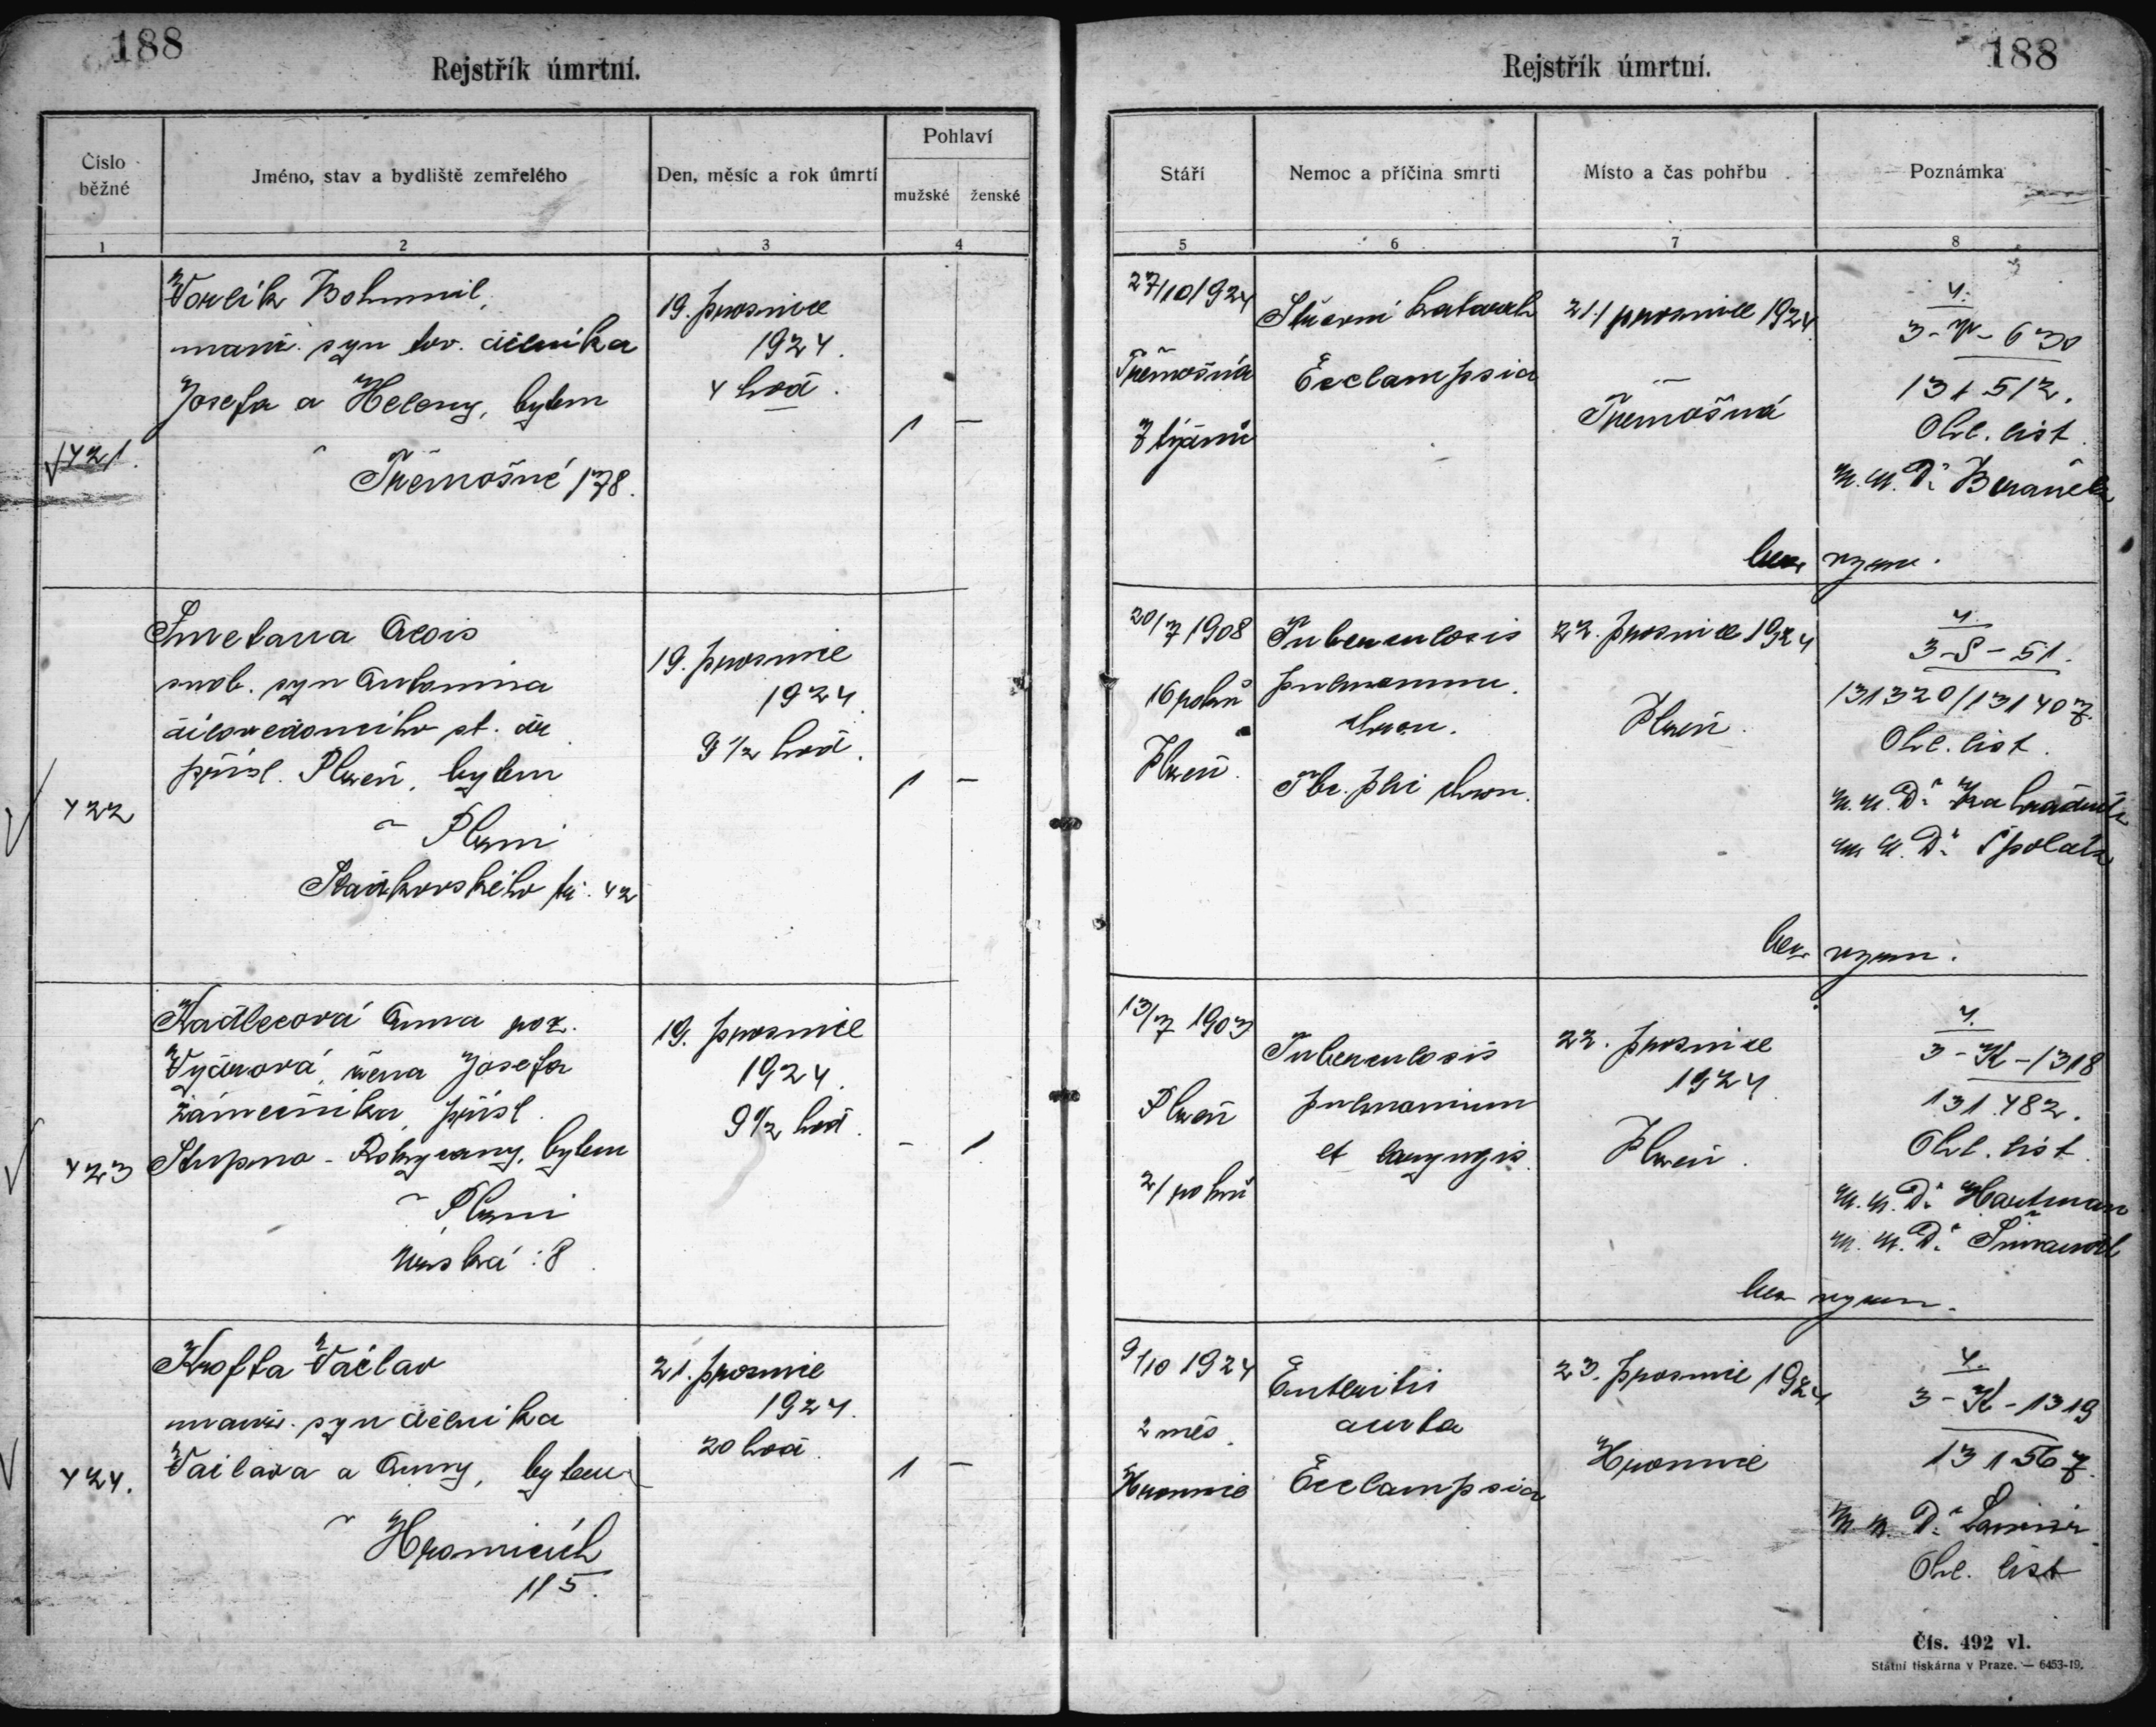 188
Rejstřík úmrtní.
Číslo běžné
Jméno, stav a bydliště zemřelého
Den, měsíc a rok úmrtí
Pohlaví
mužské
ženské
1
2
3
4
421.
Vorlík Bohumil,
manž. syn tov. dělníka
Josefa a Heleny, bytem
v Třemošné 178.
19. prosince
1924.
4 hod.
1
–
422
Smetana Alois
svob. syn Antonína
přísl. Plzeň, bytem
v Plzni
Staňkovského tř. 42
19. prosince
1924.
9 1/2 hod.
1
–
423
Kadlecová Anna roz.
žena Josefa
zámečníka, přísl.
Stupno - Rokycany, bytem
v Plzni
8
19. prosince
1924.
9 1/2 hod.
–
1
424.
Krofta Václav
manž. syn dělníka
Václava a Anny, bytem
v Hromicích
115.
21. prosince
1924.
20 hod.
1
–
188
Rejstřík úmrtní.
Stáří
Nemoc a příčina smrti
Místo a čas pohřbu
Poznámka
5
6
7
8
27/10 1924
Třemošná
7 týdnů
Střevní katarrh
Ecclampsia
21/ prosince 1924
Třemošná
4.
3-V-630
131512.
Ohl. list.
M.U.Dr. Beránek
bez vyzn.
20/7 1908
16 roků
Plzeň.
Tuberculosis
pulmonum.
chron.
Tbc. plic chron.
22. prosince 1924
Plzeň.
4.
3-S-51.
131320/131407
Ohl. list.
M.U.Dr. Zahradník
M.U.Dr. Špolák
bez vyzn.
13/7 1903
Plzeň
21 roků
Tuberculosis
pulmonum
et laryngis.
22. prosince
1924
Plzeň.
4.
3-K-1318
131.482.
Ohl. list.
M.U.Dr. Hartman
M.U.Dr.
bez vyzn.
9/10 1924
2 měs.
Hromnice
Enteritis
acuta
Ecclampsia
23. prosince 1924
Hromnice
4.
3-K-1319
131567.
M.U.Dr.
Ohl. list
Čís. 492 vl.
Státní tiskárna v Praze. — 6453-19.